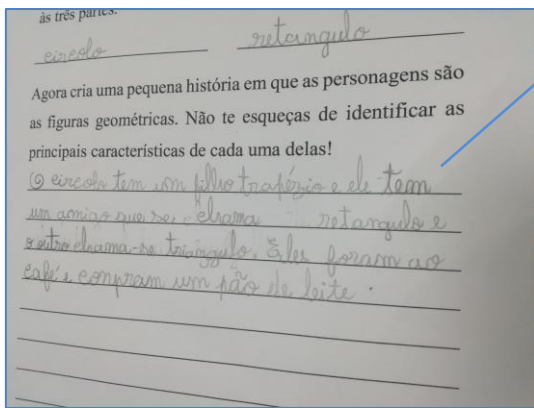 às três partes.
circolo retangulo
Agora cria uma pequena história em que as personagens são
as figuras geométricas. Não te esqueças de identificar as
principais características de cada uma delas!
O circolo tem um filho trapézio e ele tem
um amigo que se chama retangulo e
o outro chama-se triângulo. Eles foram ao
café e conpram um pão de leite.